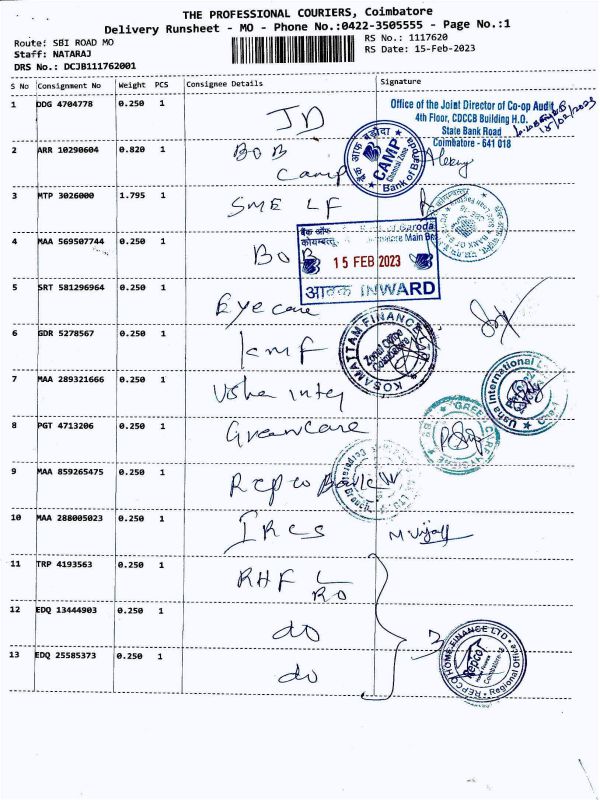 THE PROFESSIONAL COURIERS, Coimbatore
Delivery Runsheet - MO - Phone No.:0422-3505555 - Page No.:1
Route: SBI ROAD MO
RS No.: 1117620
Staff: NATARAJ
RS Date: 15-Feb-2023
DRS No.: DCJB111762001
S No Consignment No Weight PCS Consignee Details Signature
1 DDG 4704778 0.250 1 JD
Office of the Joint Director of Co-op Audit
4th Floor, CDCCB Building H.O.
State Bank Road
Coimbatore - 641 018
15/02/2023
2 ARR 10290604 0.820 1 BOB
Camp
बैंक ऑफ बड़ौदा
CAMP
Bank of Baroda
3 MTP 3026000 1.795 1 SME LF
BANK OF BARODA
4 MAA 569507744 0.250 1 BOB
बैंक ऑफ
Baroda
15 FEB 2023
आवक INWARD
5 SRT 581296964 0.250 1 Eye care
6 GDR 5278567 0.250 1 kmf
KOSAMATTAM FINANCE LTD
Zonal Office
Coimbatore
7 MAA 289321666 0.250 1 Usha Inter
Usha International L
8 PGT 4713206 0.250 1 Greencare
GREEN
9 MAA 859265475 0.250 1 Repco Bank
Branch
10 MAA 288005023 0.250 1 IRCS
M Vijay
11 TRP 4193563 0.250 1 RHF L
RO
12 EDQ 13444903 0.250 1 do
3
13 EDQ 25585373 0.250 1 do
REPCO HOME FINANCE LTD
Repco
Regional Office